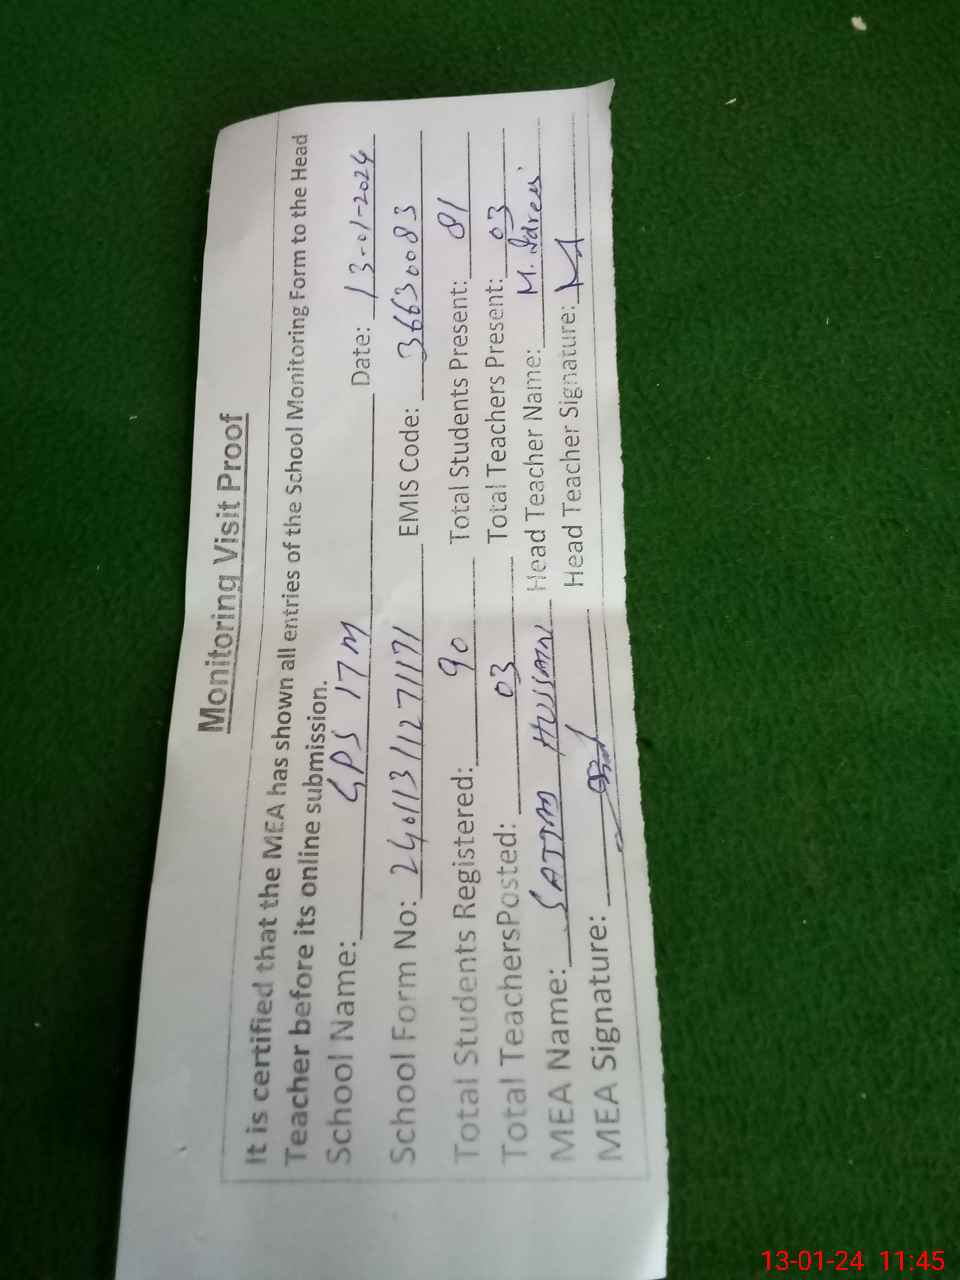 Monitoring Visit Proof
It is certified that the MEA has shown all entries of the School Monitoring Form to the Head
Teacher before its online submission.
School Name: GPS 17M Date: 13-01-2024
School Form No: 240113112711171 EMIS Code: 36630083
Total Students Registered: 90 Total Students Present: 81
Total TeachersPosted: 03 Total Teachers Present: 03
MEA Name: SAJJAD HUSSAIN Head Teacher Name: M. Idrees
MEA Signature: Head Teacher Signature:
13-01-24 11:45